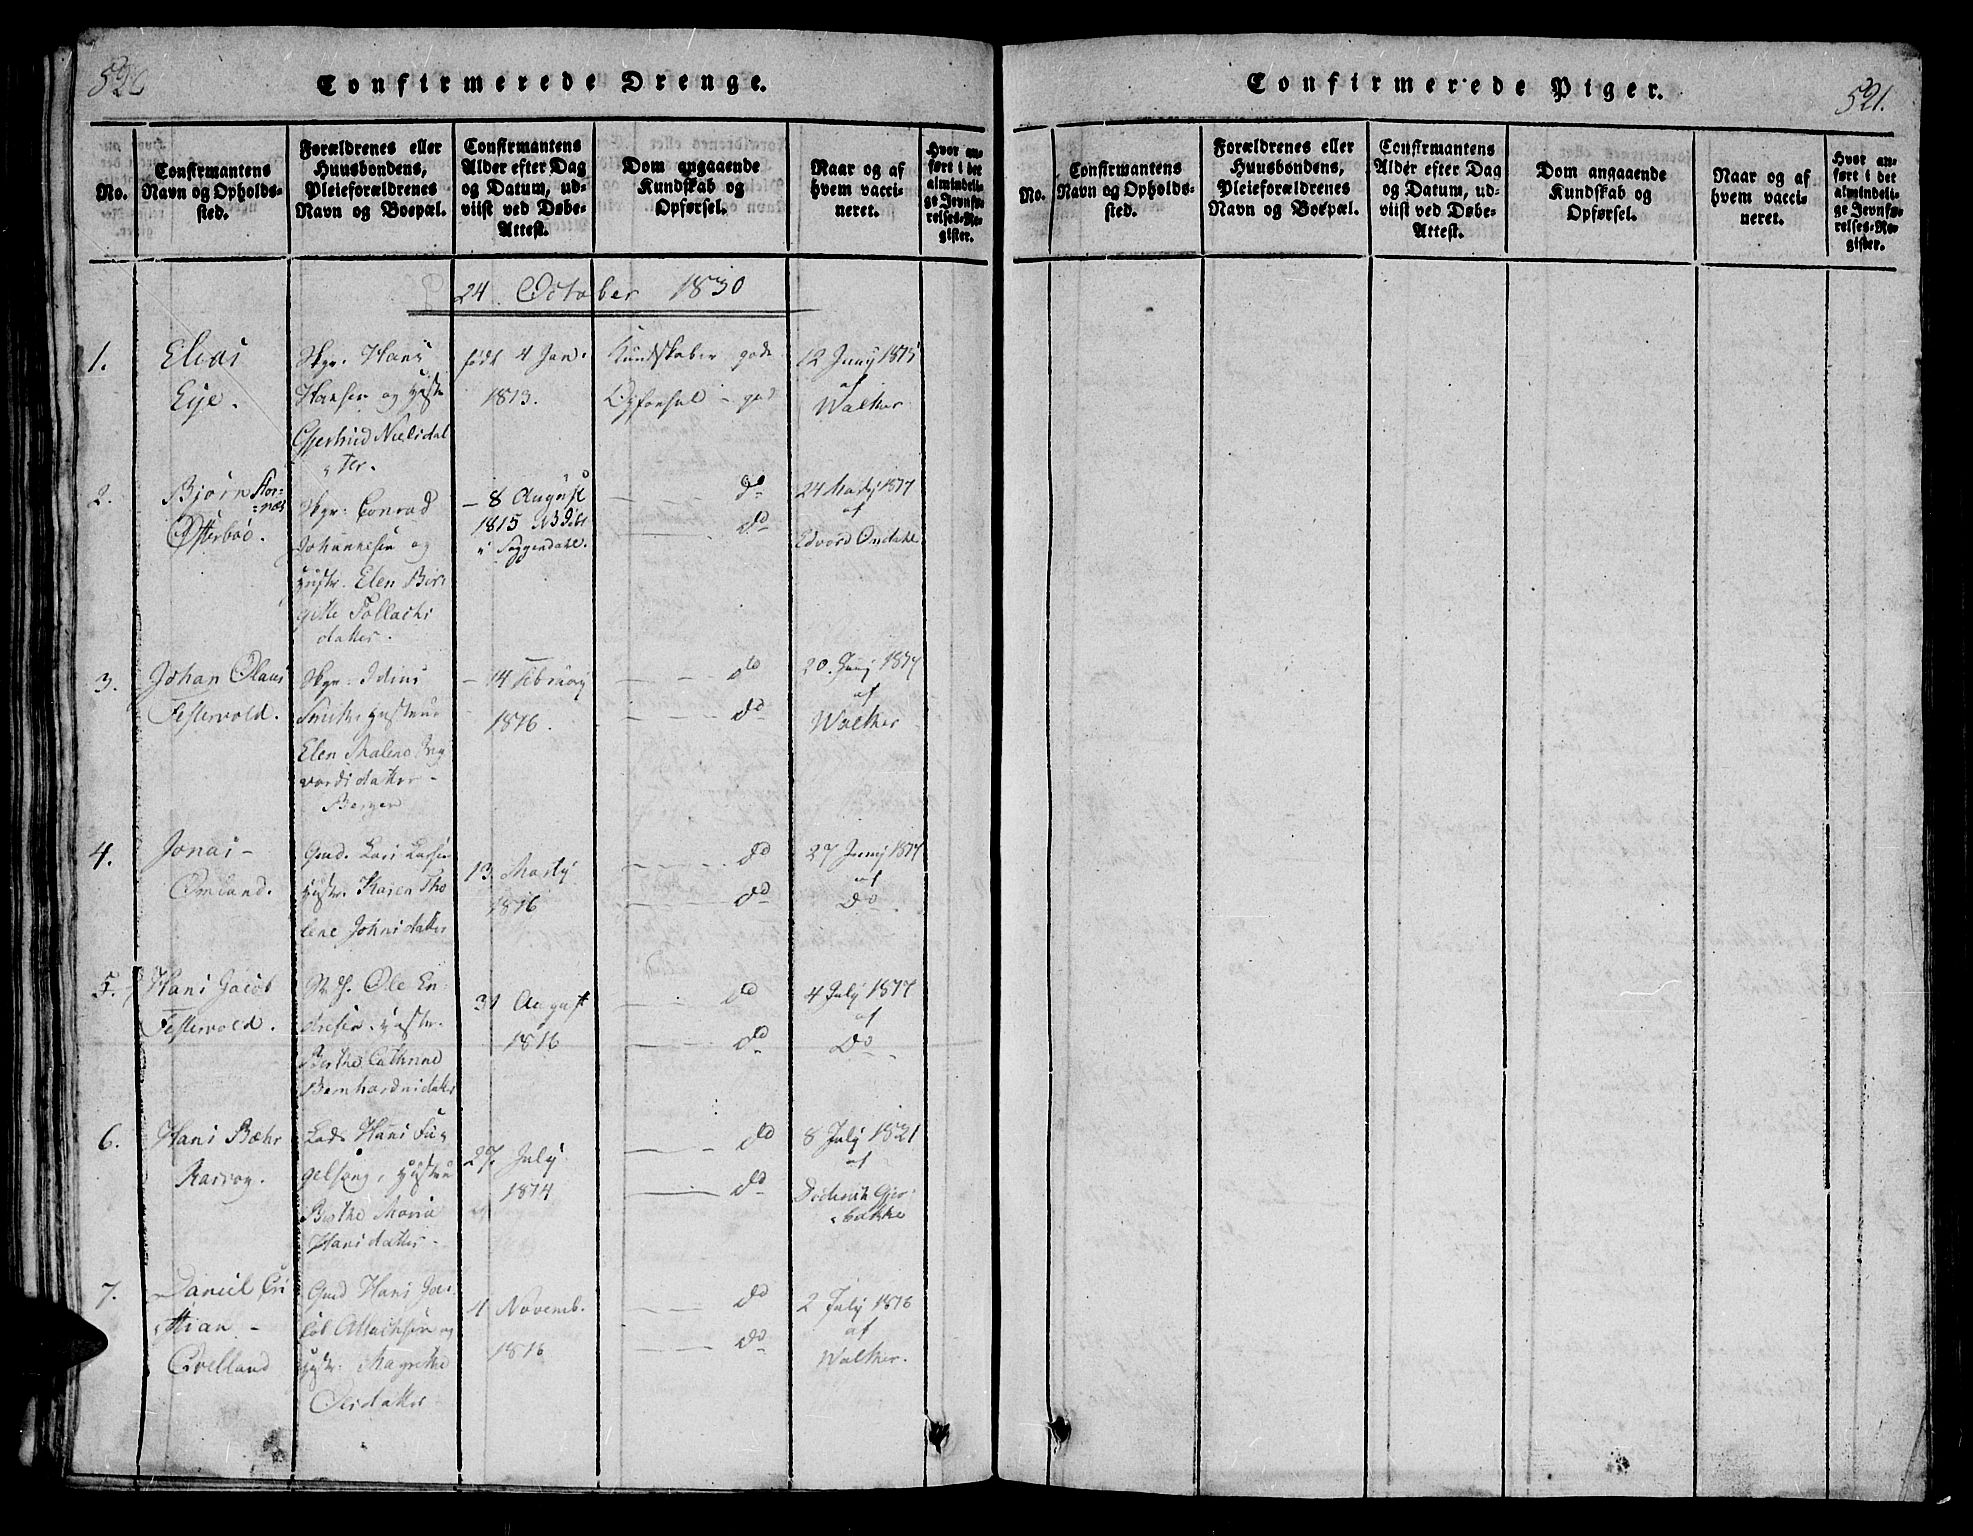 520
Confirmerede Drenge.
No.
Confirmantens
Navn og Opholds-
sted.
Forældrenes eller
Huusbondens,
Pleieforældrenes
Navn og Boepæl.
Confirmantens
Alder efter Dag
og Datum, ud-
viist ved Døbe-
Attest.
Dom angaaende
Kundskab og
Opførsel.
Naar og af
hvem vacci-
neret.
Hvor an-
ført i det
almindeli-
ge Jevnfø-
relses-Re-
gister.
24 October 1830
1.
Elias
Eije.
Hans
Hansen og Hustr
Gjertrud Nielsdat
ter.
født 4 Jan.
1813.
Kundskaber gode
Opførsel - god
12 Junij 1815
af
Walker
2.
Bjørn
Otterboe.
Conrad
Johannesen og
Hustr. Elen Bir
gitte Tollachs
datter.
- 8 August
1815
i Soggendahl.
- - do
- - do
24 Martij 1817
af
Edvord Omdahl
3.
Johan Olaus
Festervold.
Elen Malene Ing
vordsdatter -
Berger
- 14 February
1816.
- - do
- - do
20. Junij 1817
af
Walker
4.
Jonas -
Omland.
Gmd. Lars Larsen
Hustr. Karen Tho
lene Johnsdatter
13 Martij
1816
- - do
- - do
27 Junij 1817
af
Do
5.
Hans Jacob
Festervold.
Ole En-
dresen. Hustr.
Birthe Cathrine
Bernhardusdatter
31 August
1816
- - do
- - do
4 July 1817
af
Do
6.
Hans Bæhr
Rasvog.
Lods Hans Fu
gelsang, Hustru
Birthe Maria
Hansdatter -
27. July
1814
- - do
- - do
8 July 1821
af
Diderich Gjer
bakke
7.
Daniel Cri
stian -
Qvelland
Gmd Hans Ja
cob Mathisen og
Hustr. Magrethe
Osdatter -
4 Novemb.
1816
- - do
- - do
2 July 1816
af
Walker.
Confirmerede Piger.
521.
No.
Confirmantens
Navn og Opholds-
sted.
Forældrenes eller
Huusbondens,
Pleieforældrenes
Navn og Boepæl.
Confirmantens
Alder efter Dag
og Datum, ud-
viist ved Døbe-
Attest.
Dom angaaende
Kundskab og
Opførsel.
Naar og af
hvem vacci-
neret.
Hvor an-
ført i det
almindeli-
ge Jevnfø-
relses-Re-
gister.